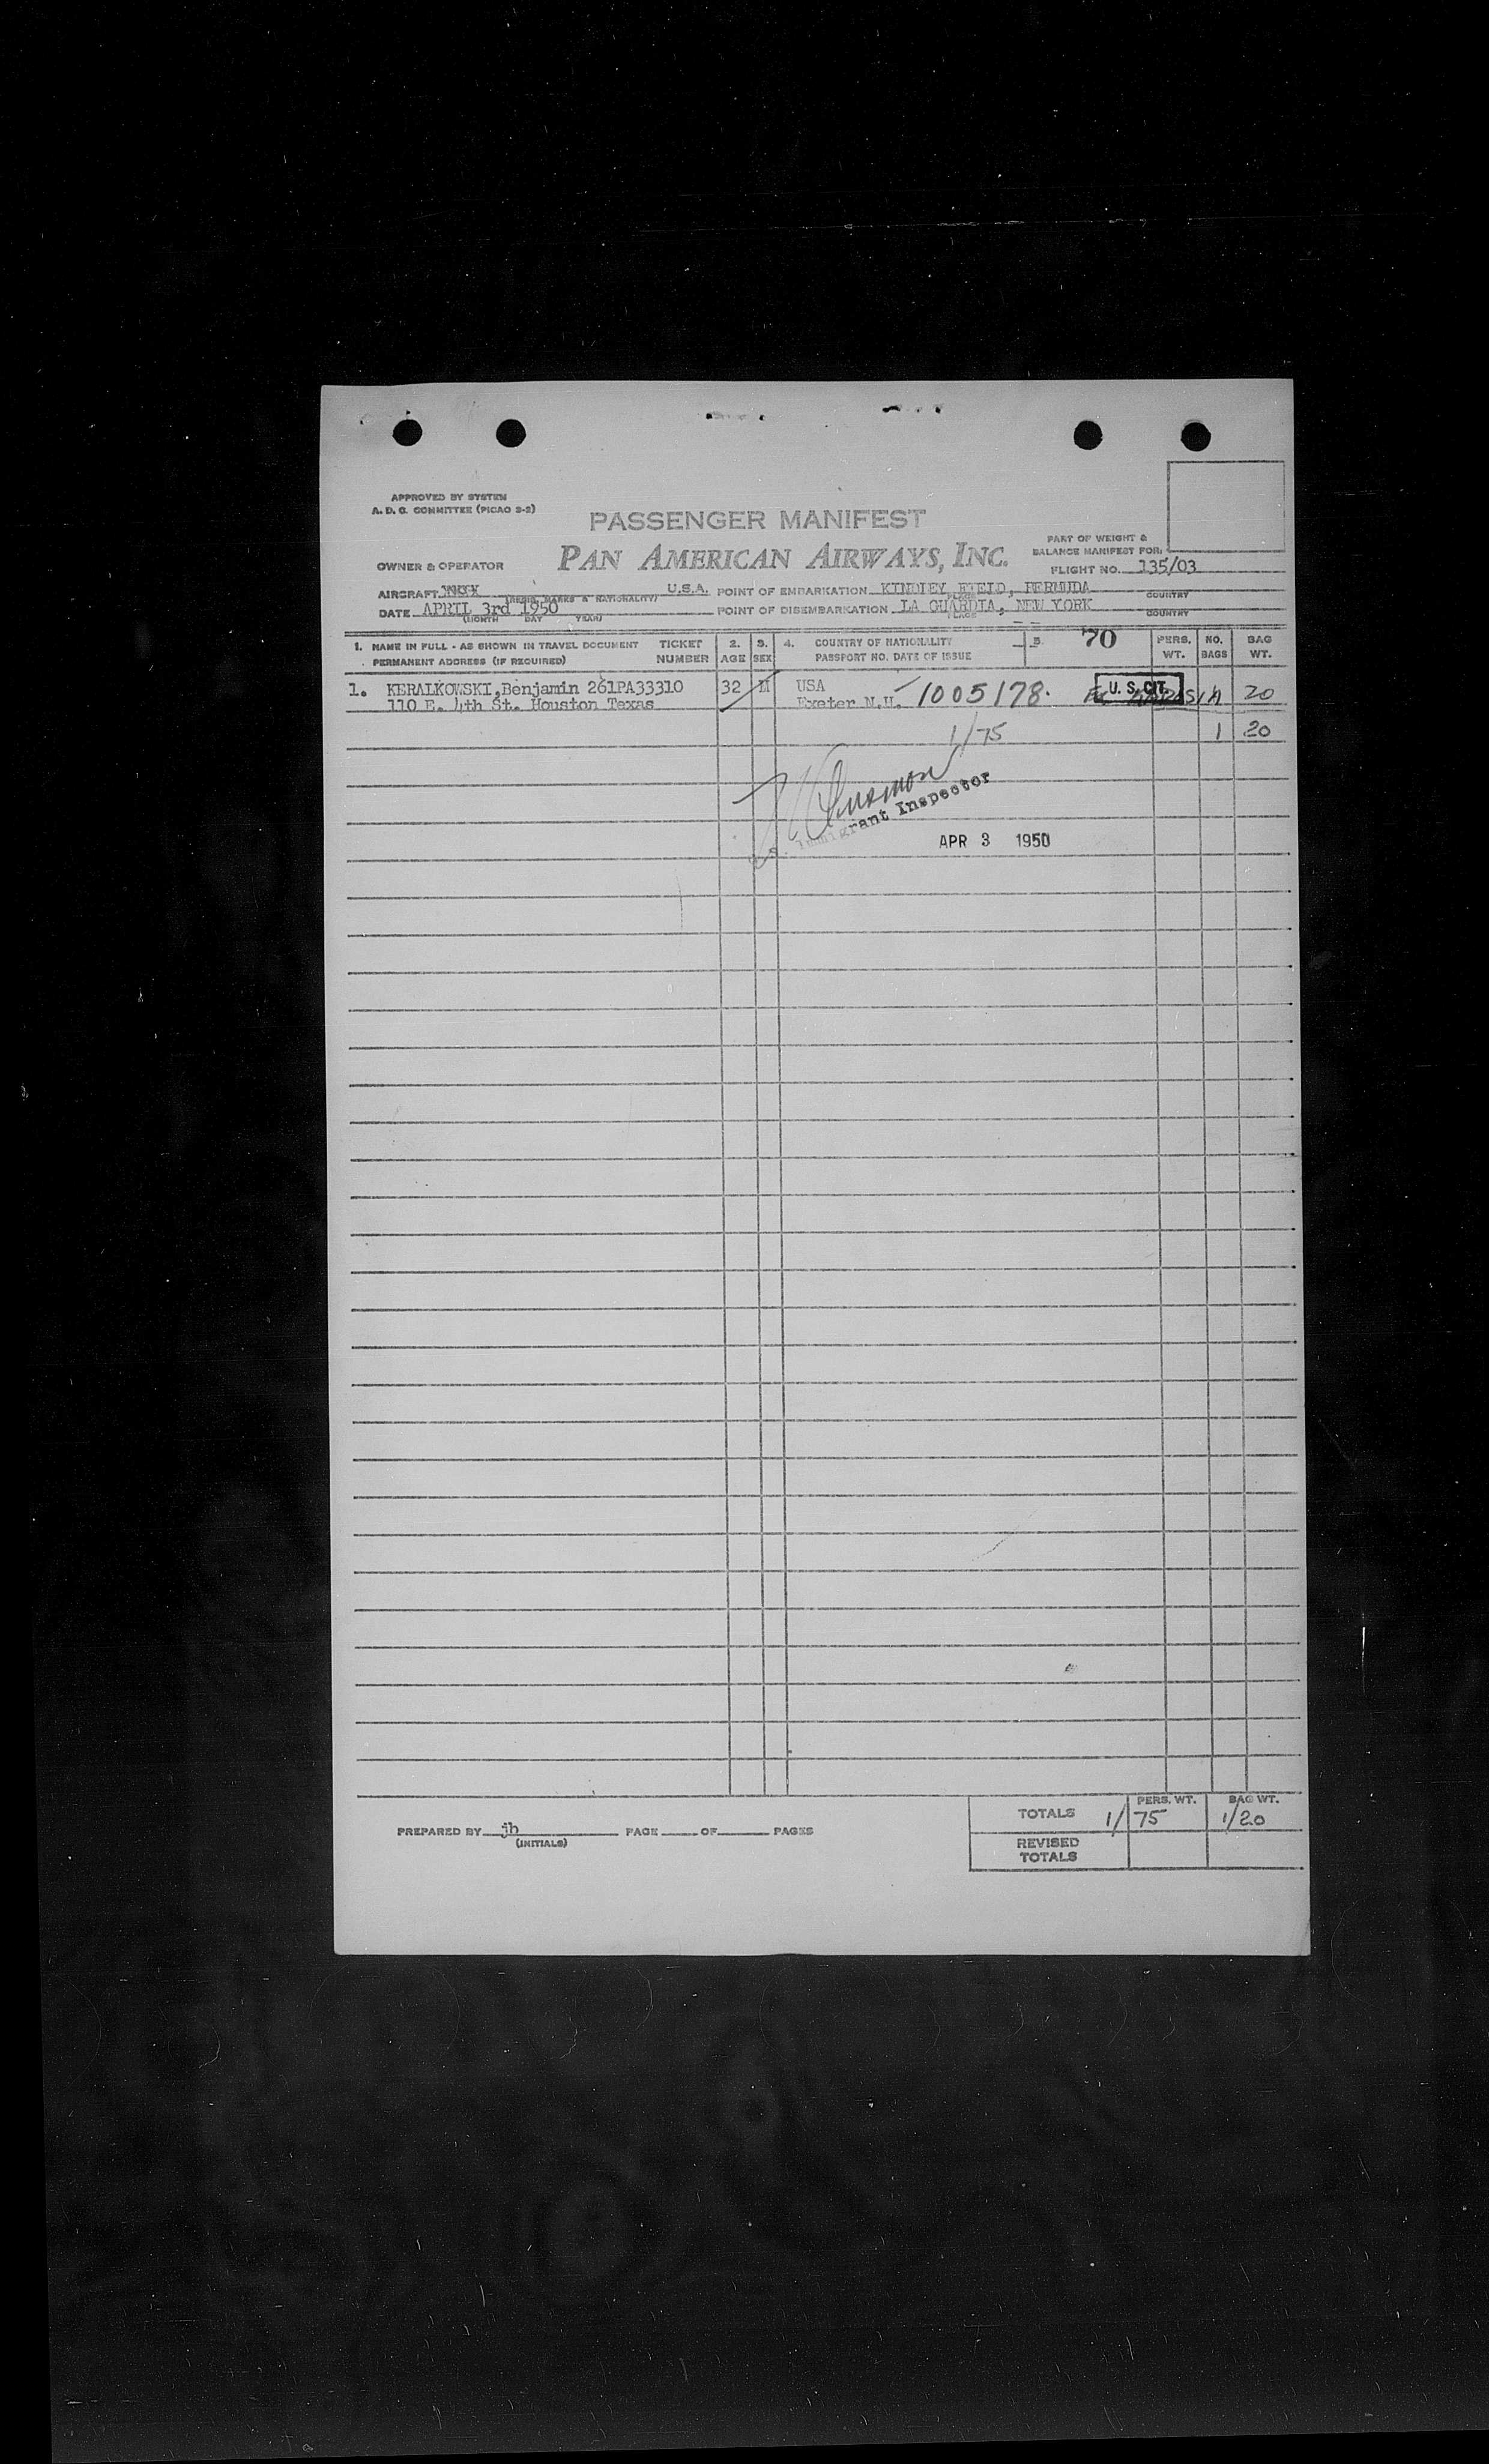 APPROVED BY SYSTEM
A. D. C. COMMITTEE (PICAO 2-2)
PASSENGER MANIFEST
PAN AMERICAN AIRWAYS, INC.
PART OF WEIGHT &
BALANCE MANIFEST FOR:
OWNER & OPERATOR
FLIGHT NO. 135/03
AIRCRAFT U.S.A. POINT OF EMBARKATION KINDLEY FIELD, BERMUDA
(REGIS. MARKS & NATIONALITY) PLACE COUNTRY
DATE APRIL 3rd 1950 POINT OF DISEMBARKATION LA GUARDIA, NEW YORK
(MONTH DAY YEAR) PLACE COUNTRY
1. NAME IN FULL - AS SHOWN IN TRAVEL DOCUMENT TICKET 2. 3. 4. COUNTRY OF NATIONALITY 5. 70 PERS. NO. BAG
PERMANENT ADDRESS (IF REQUIRED) NUMBER AGE SEX PASSPORT NO. DATE OF ISSUE WT. BAGS WT.
1. KERALKOWSKI,Benjamin 261PA33310 32 M USA 1005178. U. S. CIT. 20
110 E. 4th St. Houston Texas Exeter N.H.
1/75 1 20
Immigrant Inspector
APR 3 1950
PERS. WT. BAG WT.
TOTALS 1/75 1/20
PREPARED BY jb PAGE OF PAGES
(INITIALS)
REVISED
TOTALS